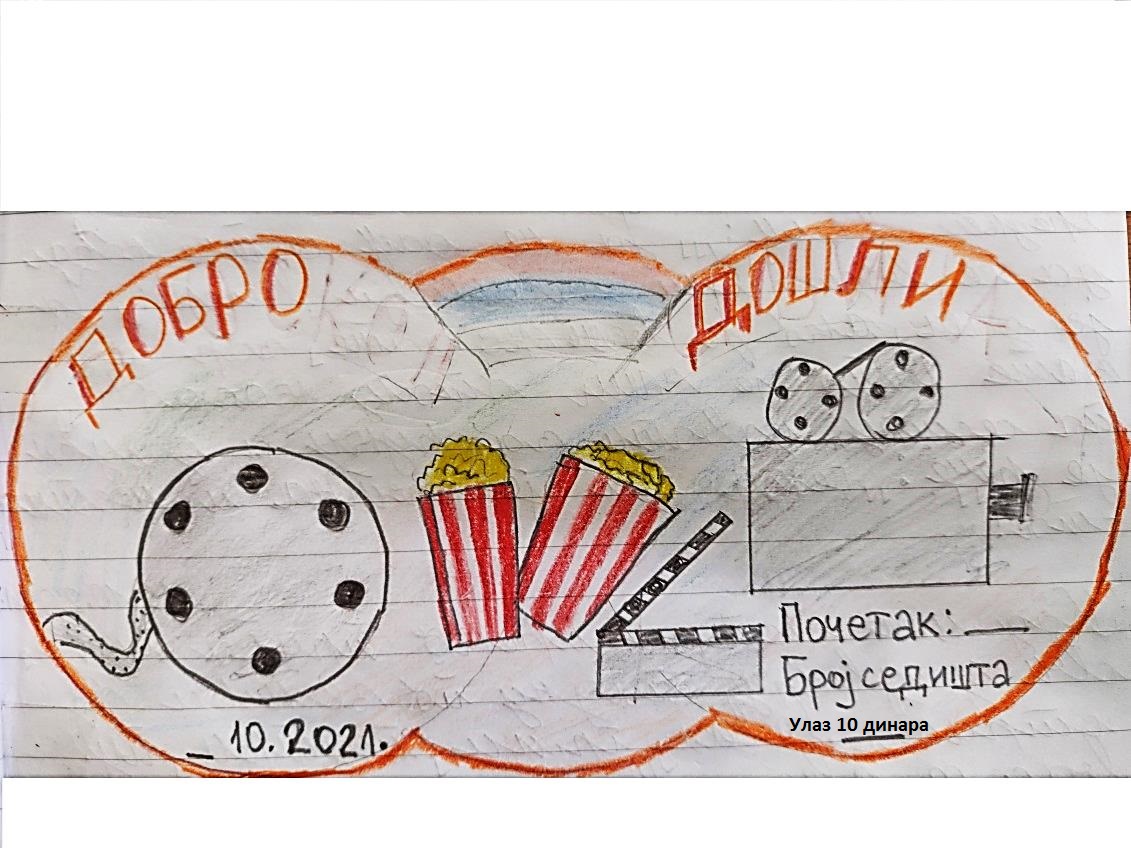 ДОБРО ДОШЛИ
Почетак: ___
Број седишта
Улаз 10 динара
_ 10.2021.